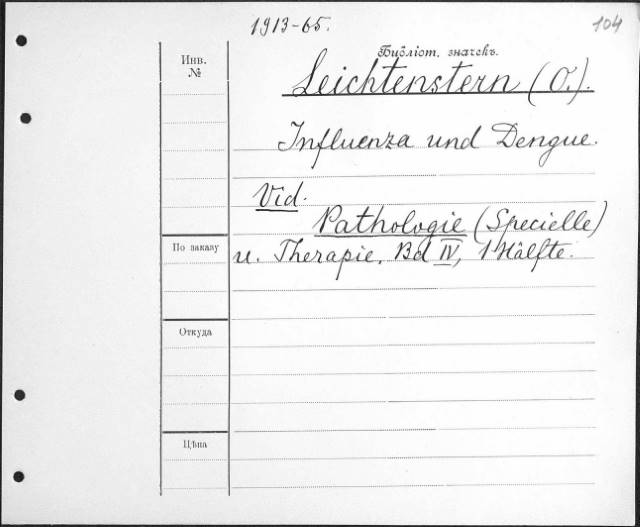 1913-65.
104
Библіот. значекъ.
Инв.
№
Leichtenstern (O.).
Influenza und Dengue.
Vid.
Pathologie (Specielle)
По заказу
u. Therapie, Bd IV, 1 Hälfte.
Откуда
Цѣна